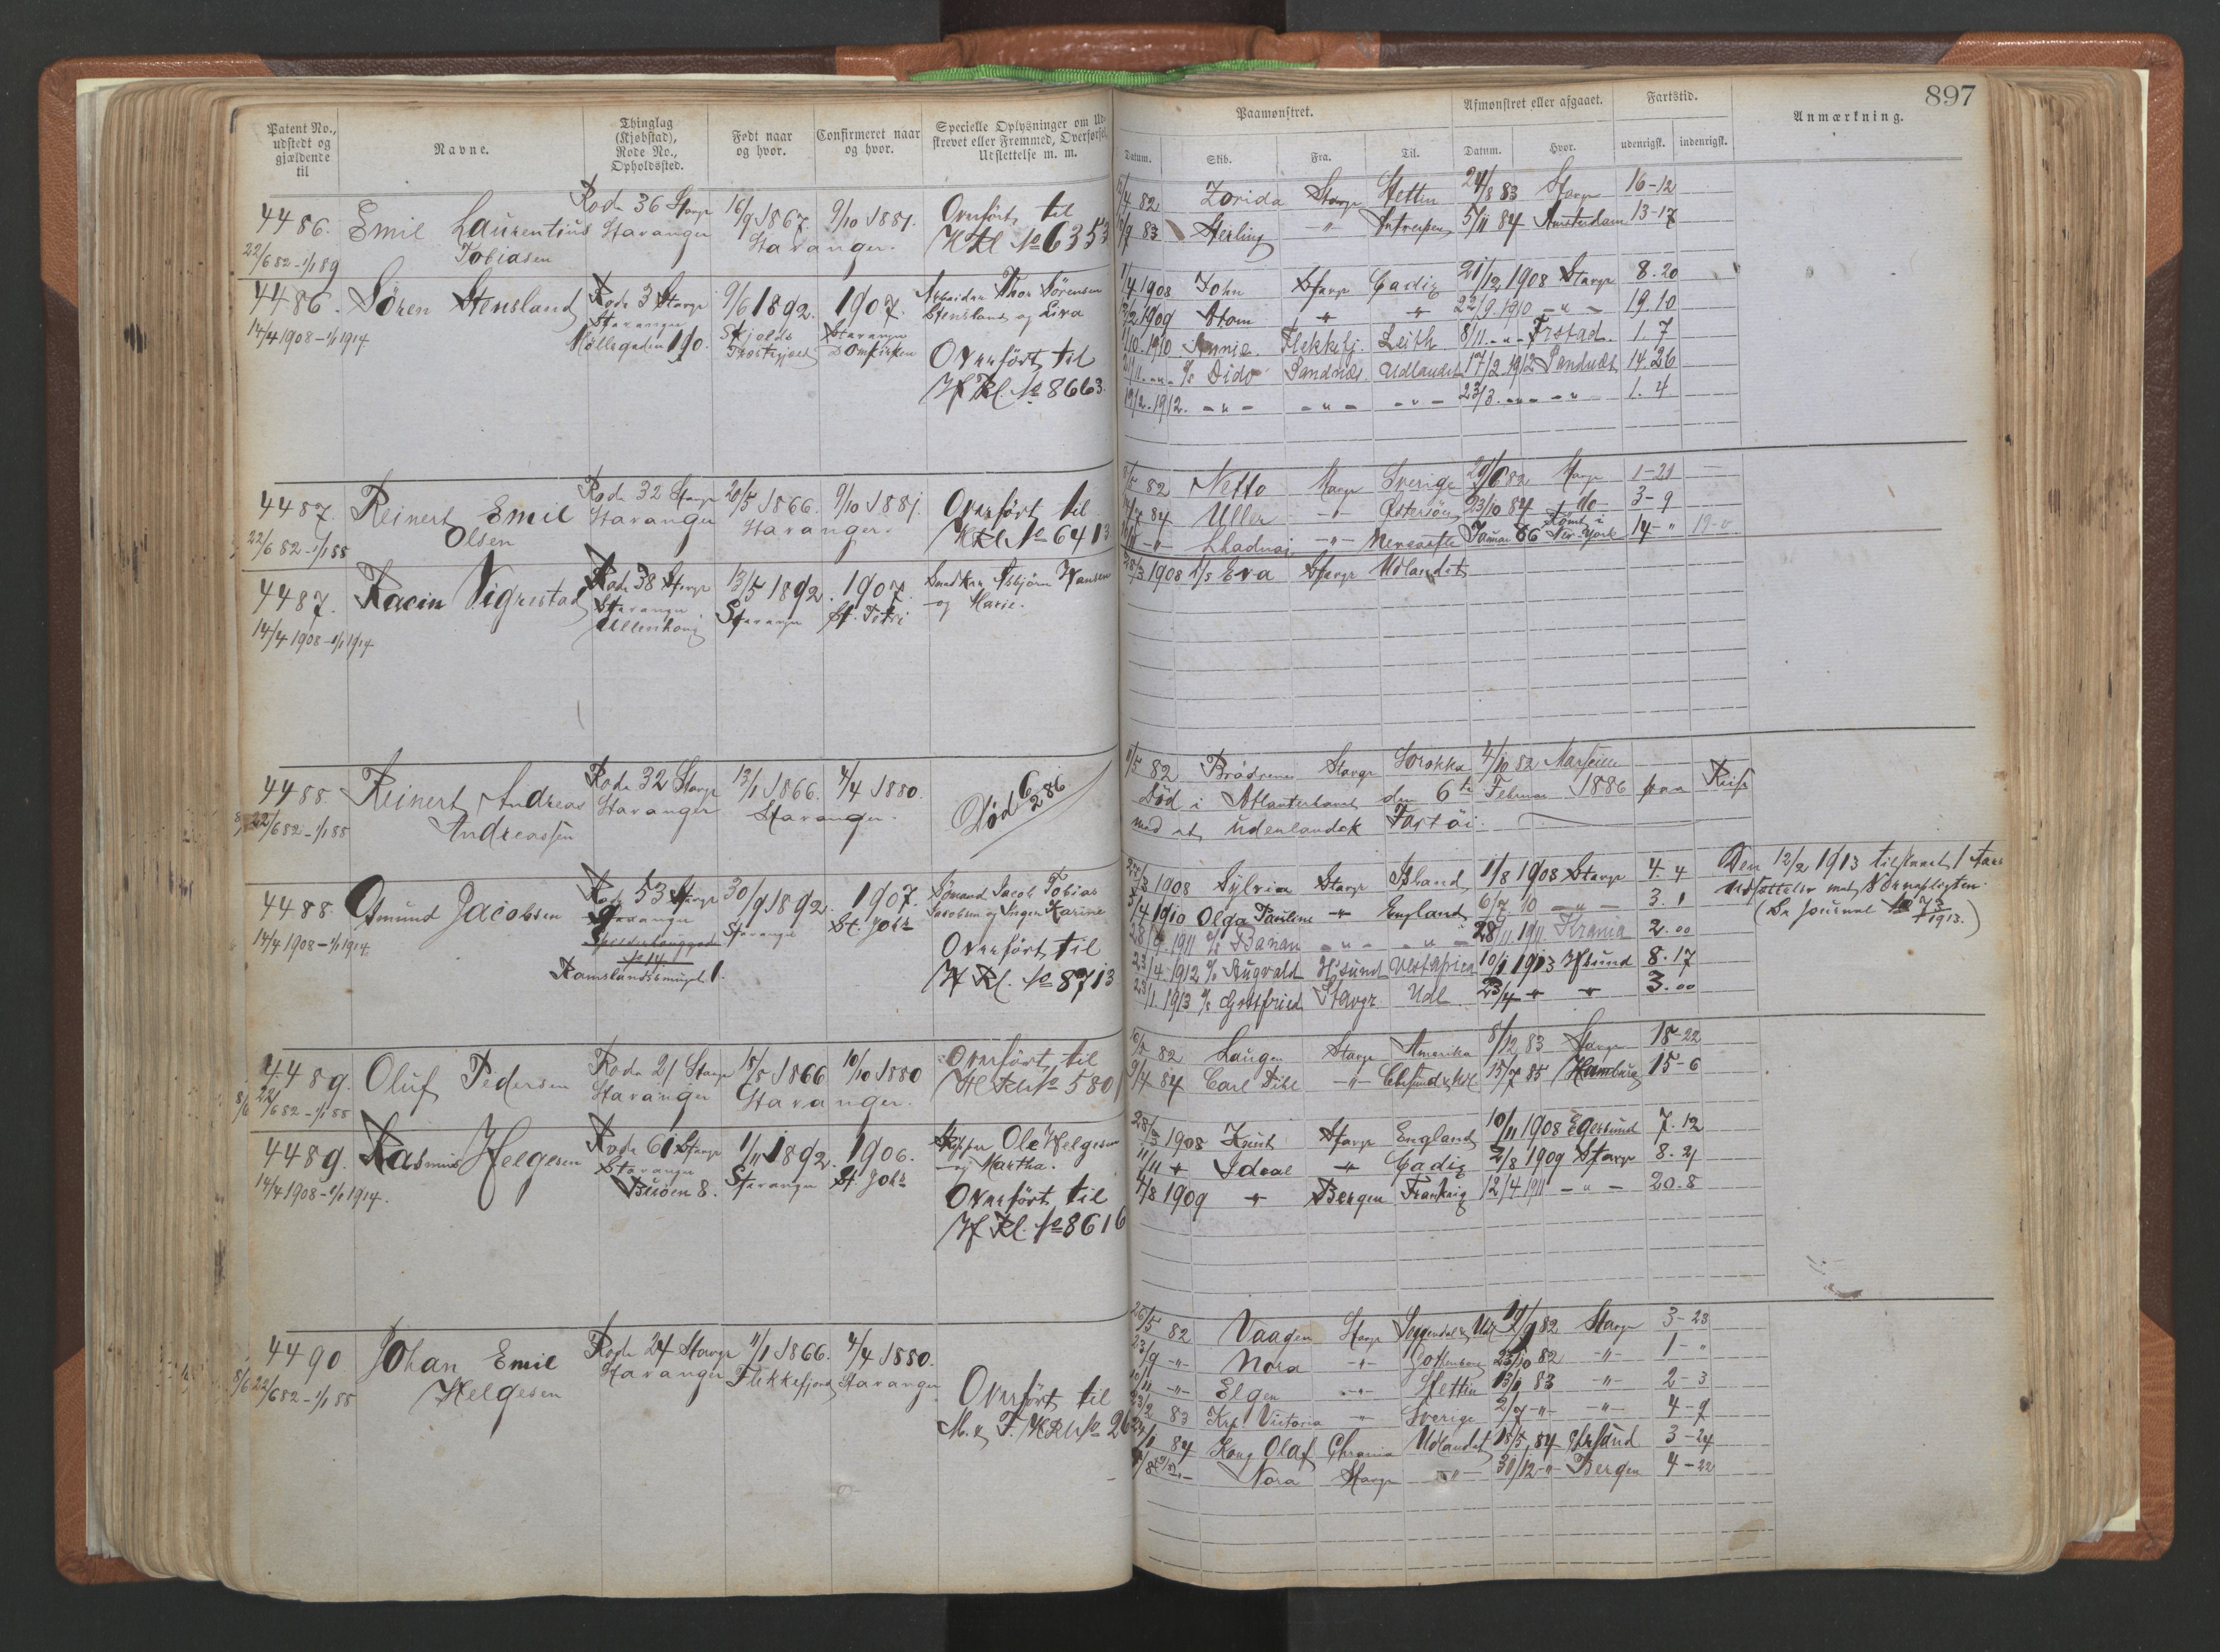 897
Patent No., udstedt og gjældende til
Navne.
Thinglag (Kjøbstad), Rode No., Opholdssted.
Født naar og hvor.
Confirmeret naar og hvor.
Specielle Oplysninger om Ud-
skrevet eller Fremmed, Overførsel,
Udslettelse m. m.
Paamønstret.
Afmønstret eller afgaaet.
Fartstid.
Anmærkning.
Datum. Skib. Fra. Til. Datum. Hvor. udenrigsk. indenrigsk.
4486. Emil Laurentius Rode 36 Stavgr 16/9 1867. 9/10 1881. Overført til
Tobiasen Stavanger Stavanger. No 6353
22/6 82 - 1/1 89
82 Zorida Stavgr Stettin 24/8 83 Stavgr 16-12
83 Sterling -"- Antwerpen 5/11 84 Amsterdam 13-17
4486. Sören Stensland Rode 3 Stavgr 9/6 1892. 1907. Arbeider Thor Sörensen
Stavanger Skjold Stavanger Stensland og Liva
14/4 1908 - 1/1 1914 Möllegaden 190. Domkirken
Overført til
H Rl. No 8663.
1908 John Stavgr Cadiz 21/12 1908 Stavgr 8.20
1909 Stam 22/9 1910 -"- 19.10
1910 Annie Flekkefj. Leith 8/11 -"- 1.7
Dido Sandnæs Udlandet 17/2 1912 Sandnæs 14.26
19/2 1912. -"- -"- -"- 23/3 -"- -"- 1.4
4487. Reinert Emil Rode 32 Stavgr 20/5 1866. 9/10 1881. Overført til
Olsen Stavanger Stavanger. No 6413
22/6 82 - 1/1 88
82 Netto Stavgr Sverige 82 Stavgr 1-21
84 Uller -"- Østersöen 23/10 84 do 3-9
-"- Januar 86 New-York 14-"
4487. Racin Vigrestad Rode 38 Stavgr 13/5 1892. 1907. Asbjörn Hansen
Stavanger Stavanger St. Petri og Marie.
14/4 1908 - 1/1 1914 Ullenhaug
28/3 1908 Eva Stavgr Udlandet
4488. Reinert Andreas Rode 32 Stavgr 13/1 1866. 4/4 1880. Död 6/2 86
Andreassen Stavanger Stavanger.
22/6 82 - 1/1 88
82 Brödrene Stavgr 4/10 82 Marseille
Död i Atlanterhavet den 6te Februar 1886 paa Reise
med et udenlandsk Fartöi.
4488. Osmund Jacobsen Rode 53 Stavgr 30/9 1892. 1907. Sömand Jacob Tobias
Stavanger Stavanger St. Johs Jacobsen og Inger Karine
14/4 1908 - 1/1 1914.
Ramslandssmuget 1.
Overført til
H Rl. No 8713
1908 Sylvia Stavgr Island 1/8 1908 Stavgr 4.4
1910 Olga Pauline England 6/7 10 -"- 3.1
1911 Banan -"- -"- 28/11 1911 Krania 2.00
23/4 1912 Augvald H'sund Vestafrica 10/1 1913 H'sund 8.17
23/1 1913 Gottfried Stavgr Udl. 23/4 3.00
Den 12/2 1913 tilstaaet 1 Aars
Udsættelse med Værnepligten.
(Se Journal No 73/1913.)
4489. Oluf Pedersen Rode 21 Stavgr 18/5 1866 10/10 1880 Overført til
Stavanger Stavanger. No 5801
22/6 82 - 1/1 88
82 Haugen Stavgr Amerika 8/12 83 Stavgr 18-22
84 Carl Dihl -"- 15/7 85 Hamburg 15-6
4489. Rasmus Helgesen Rode 61 Stavgr 1/11 1892. 1906. Skipper Ole Helgesen
Stavanger Stavanger St. Johs og Martha.
14/4 1908 - 1/1 1914. Buöen 8.
Overført til
H Rl. No 8616
28/3 1908 Knut Stavgr England 10/11 1908 Egersund 7.12
11/11 Ideal Cadiz 2/8 1909 Stavgr 8.21
4/8 1909 Bergen Frankrig 12/4 1911 -"- 20.8
4490. Johan Emil Rode 24 Stavgr 11/1 1866. 4/4 1880.
Helgesen Stavanger Flekkefjord Stavanger
22/6 82 - 1/1 88
Overført til
M. & F. No 26
26/5 82 Vaagen Stavgr 82 Stavgr 3-23
23/9 -"- Nora -"- Gothenborg 23/10 82 -"- 1-"
-"- Elgen -"- Stettin 83 -"- 2-3
83 Victoria -"- Sverige 2/7 -"- -"- 4-9
84 Kong Olaf Chrania Udlandet 18/5 84 3-24
Nora Stavgr -"- 30/12 -"- Bergen 4-22